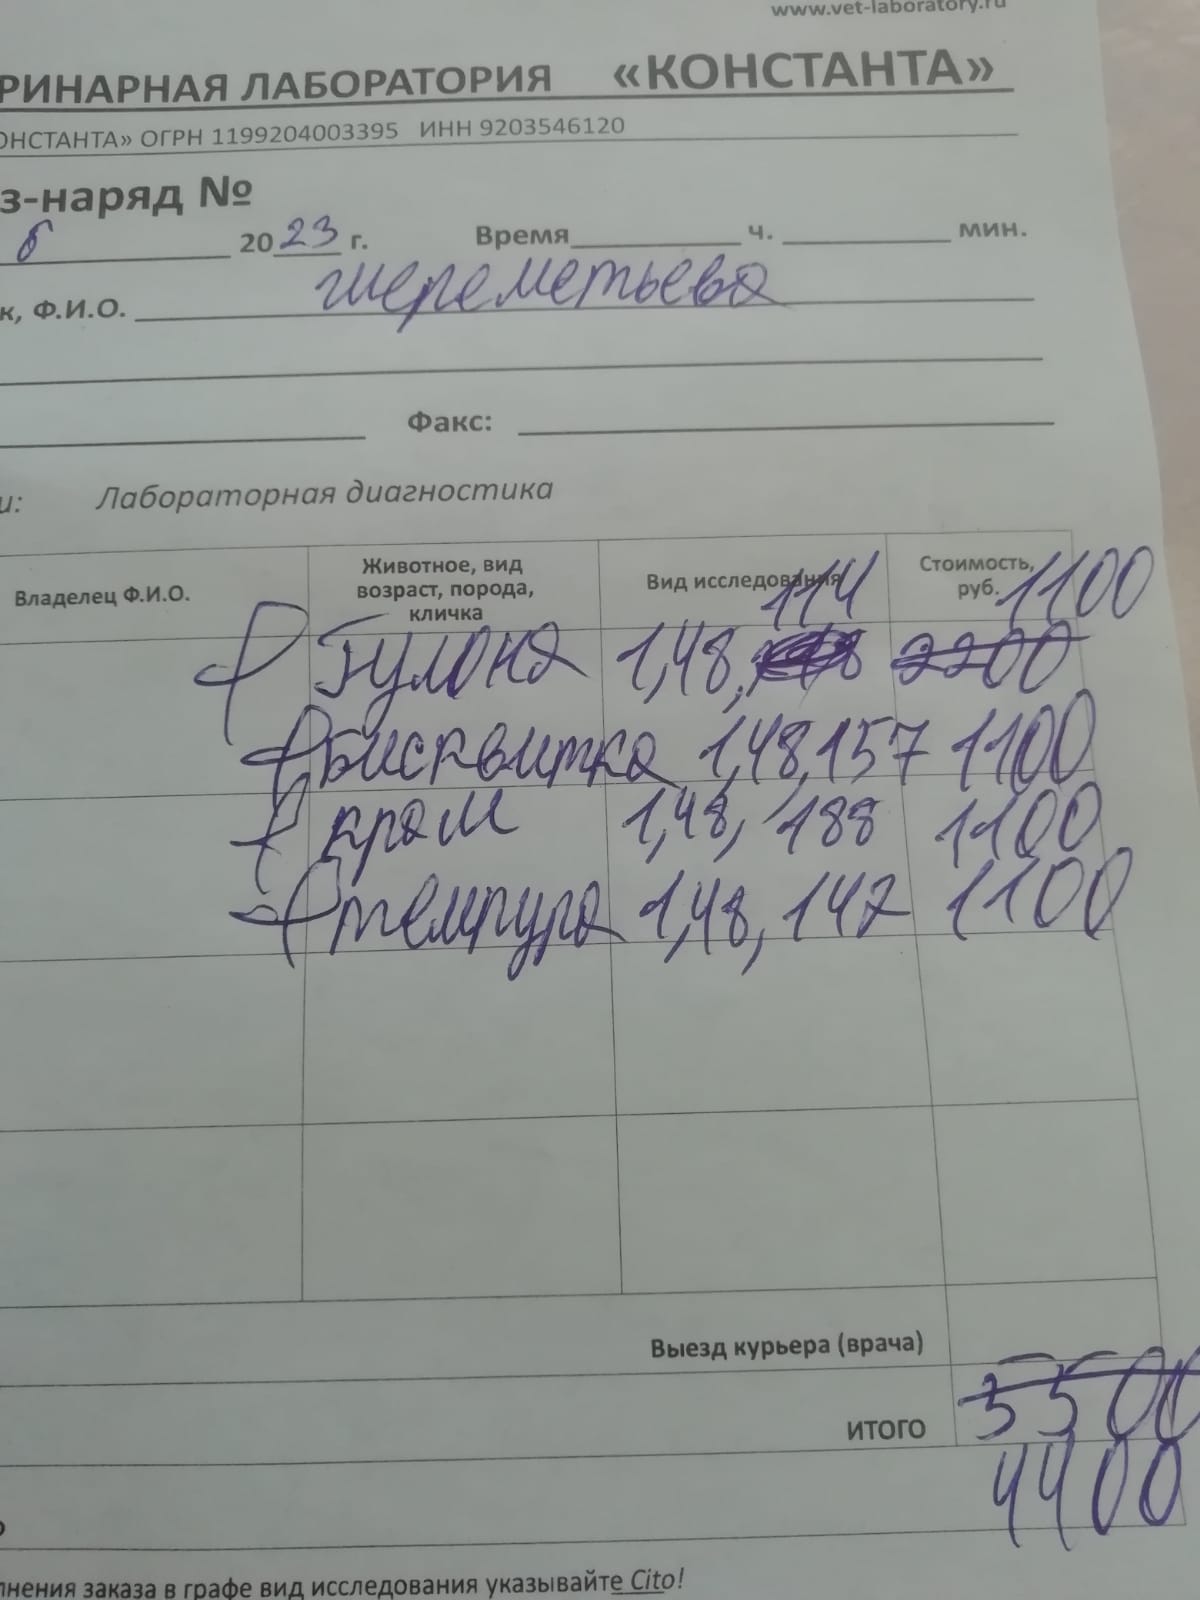 www.vet-laboratory.ru
РИНАРНАЯ ЛАБОРАТОРИЯ «КОНСТАНТА»
ОНСТАНТА» ОГРН 1199204003395 ИНН 9203546120
з-наряд №
6 2023 г. Время ч. мин.
к, Ф.И.О. Шереметьева
Факс:
и: Лабораторная диагностика
Владелец Ф.И.О.
Животное, вид
возраст, порода,
кличка
Вид исследования
Стоимость,
руб.
114 1100
Гулона 1,48, 2200
Бисквитка 1,48,157 1100
кром 1,48, 188 1100
темпура 1,48, 147 1100
Выезд курьера (врача)
ИТОГО 5500
4400
лнения заказа в графе вид исследования указывайте Cito!